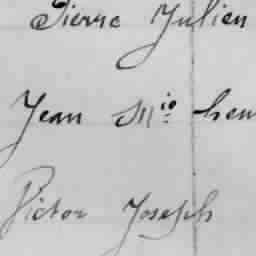 Pierre Julien
Jean M io hen
Victor Joseph